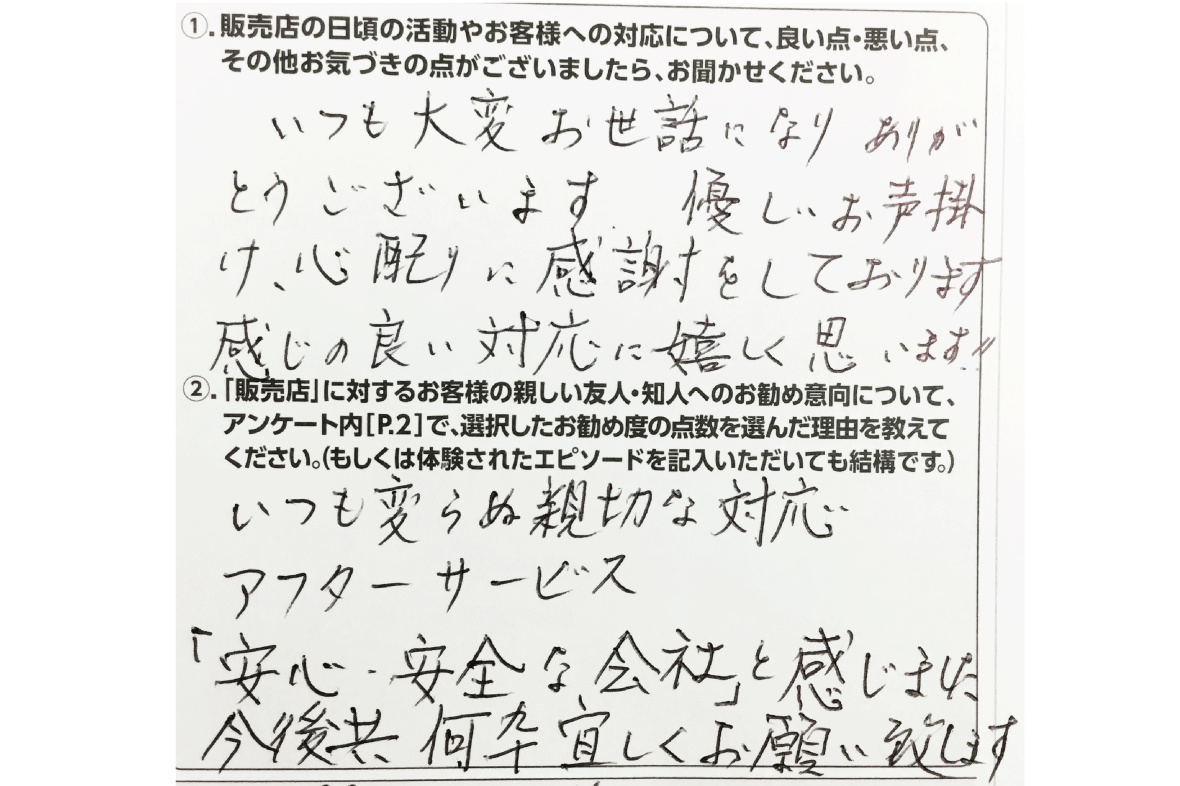 ①.販売店の日頃の活動やお客様への対応について、良い点・悪い点、
その他お気づきの点がございましたら、お聞かせください。
いつも大変お世話になり ありが
とうございます 優しいお声掛
け、心配りに感謝をしております
感じの良い対応に嬉しく思います!!
②.「販売店」に対するお客様の親しい友人・知人へのお勧め意向について、
アンケート内[P.2]で、選択したお勧め度の点数を選んだ理由を教えて
ください。(もしくは体験されたエピソードを記入いただいても結構です。)
いつも変らぬ親切な対応
アフターサービス
「安心・安全な会社」と感じました
今後共何卒宜しくお願い致します